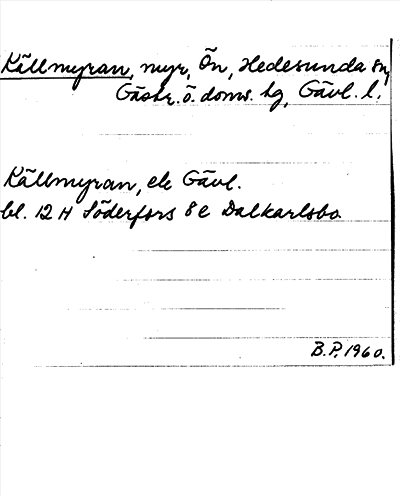 Källmyran, myr, Ön, Hedesunda sn,
Gästr. ö. doms. hg, Gävl. l.
Källmyran, ek Gävl.
bl. 12 H Söderfors 8 e Dalkarlsbo
B.P. 1960.